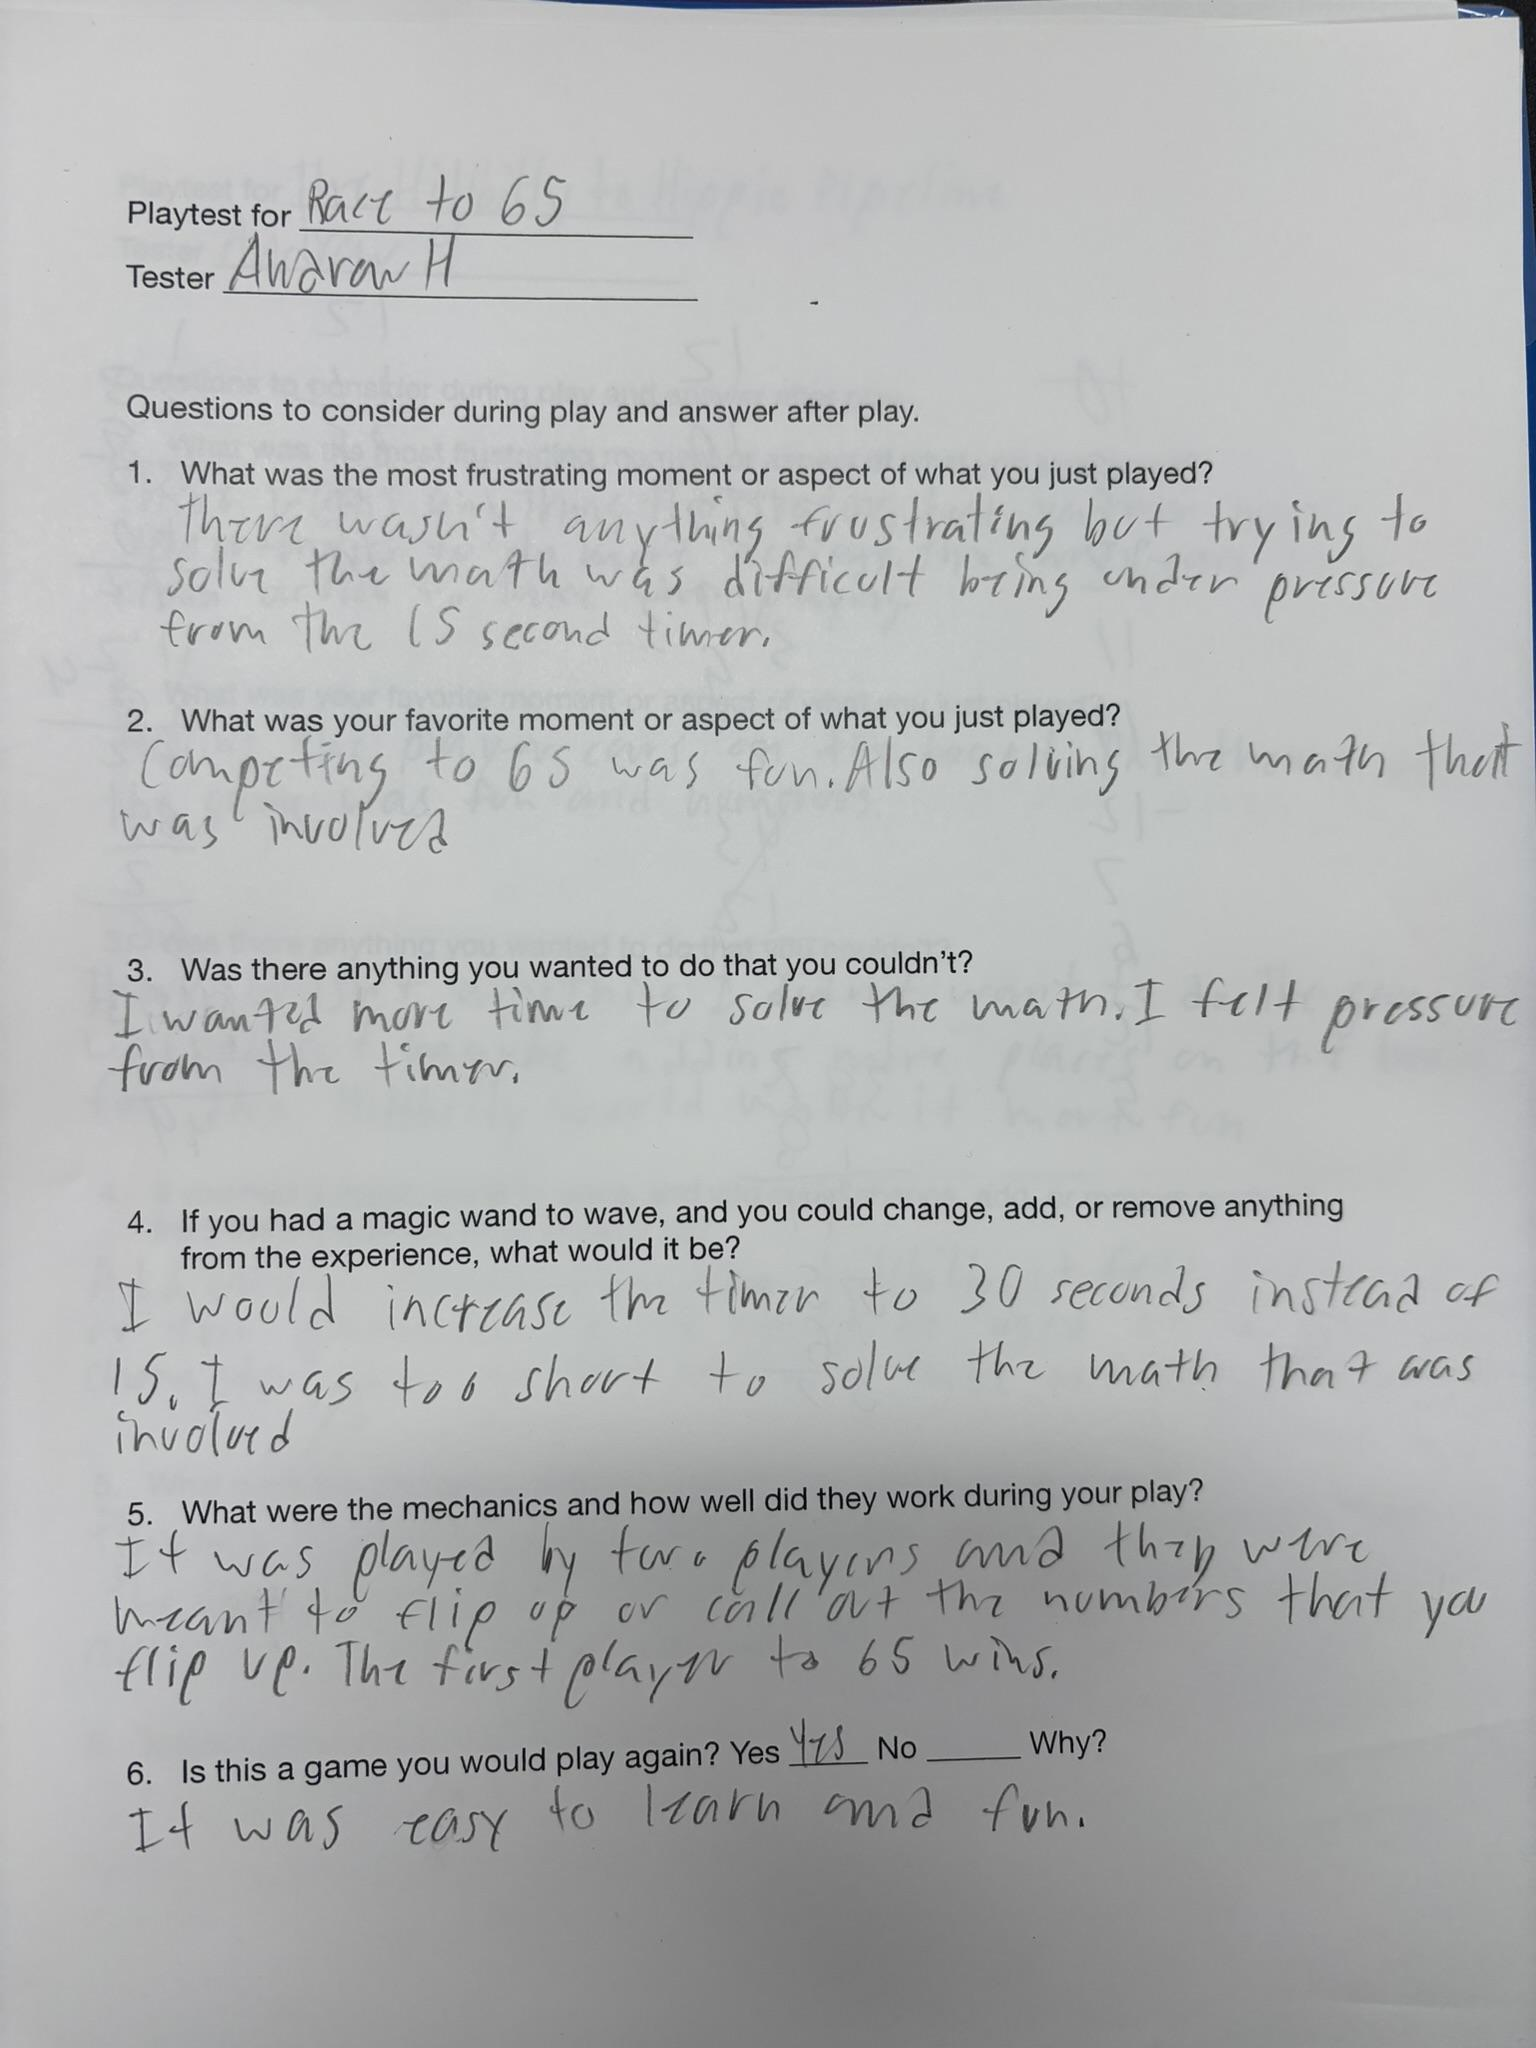 Playtest for Race to 65
Tester Andrew H
Questions to consider during play and answer after play.
1. What was the most frustrating moment or aspect of what you just played?
There wasn't anything frustrating but trying to
solve the math was difficult being under pressure
from the 15 second timer.
2. What was your favorite moment or aspect of what you just played?
Competing to 65 was fun. Also solving the math that
was involved
3. Was there anything you wanted to do that you couldn't?
I wanted more time to solve the math. I felt pressure
from the timer.
4. If you had a magic wand to wave, and you could change, add, or remove anything
from the experience, what would it be?
I would increase the timer to 30 seconds instead of
15. I was too short to solve the math that was
involved
5. What were the mechanics and how well did they work during your play?
It was played by two players and they were
meant to flip up or call out the numbers that you
flip up. The first player to 65 wins.
6. Is this a game you would play again? Yes Yes No ____ Why?
It was easy to learn and fun.